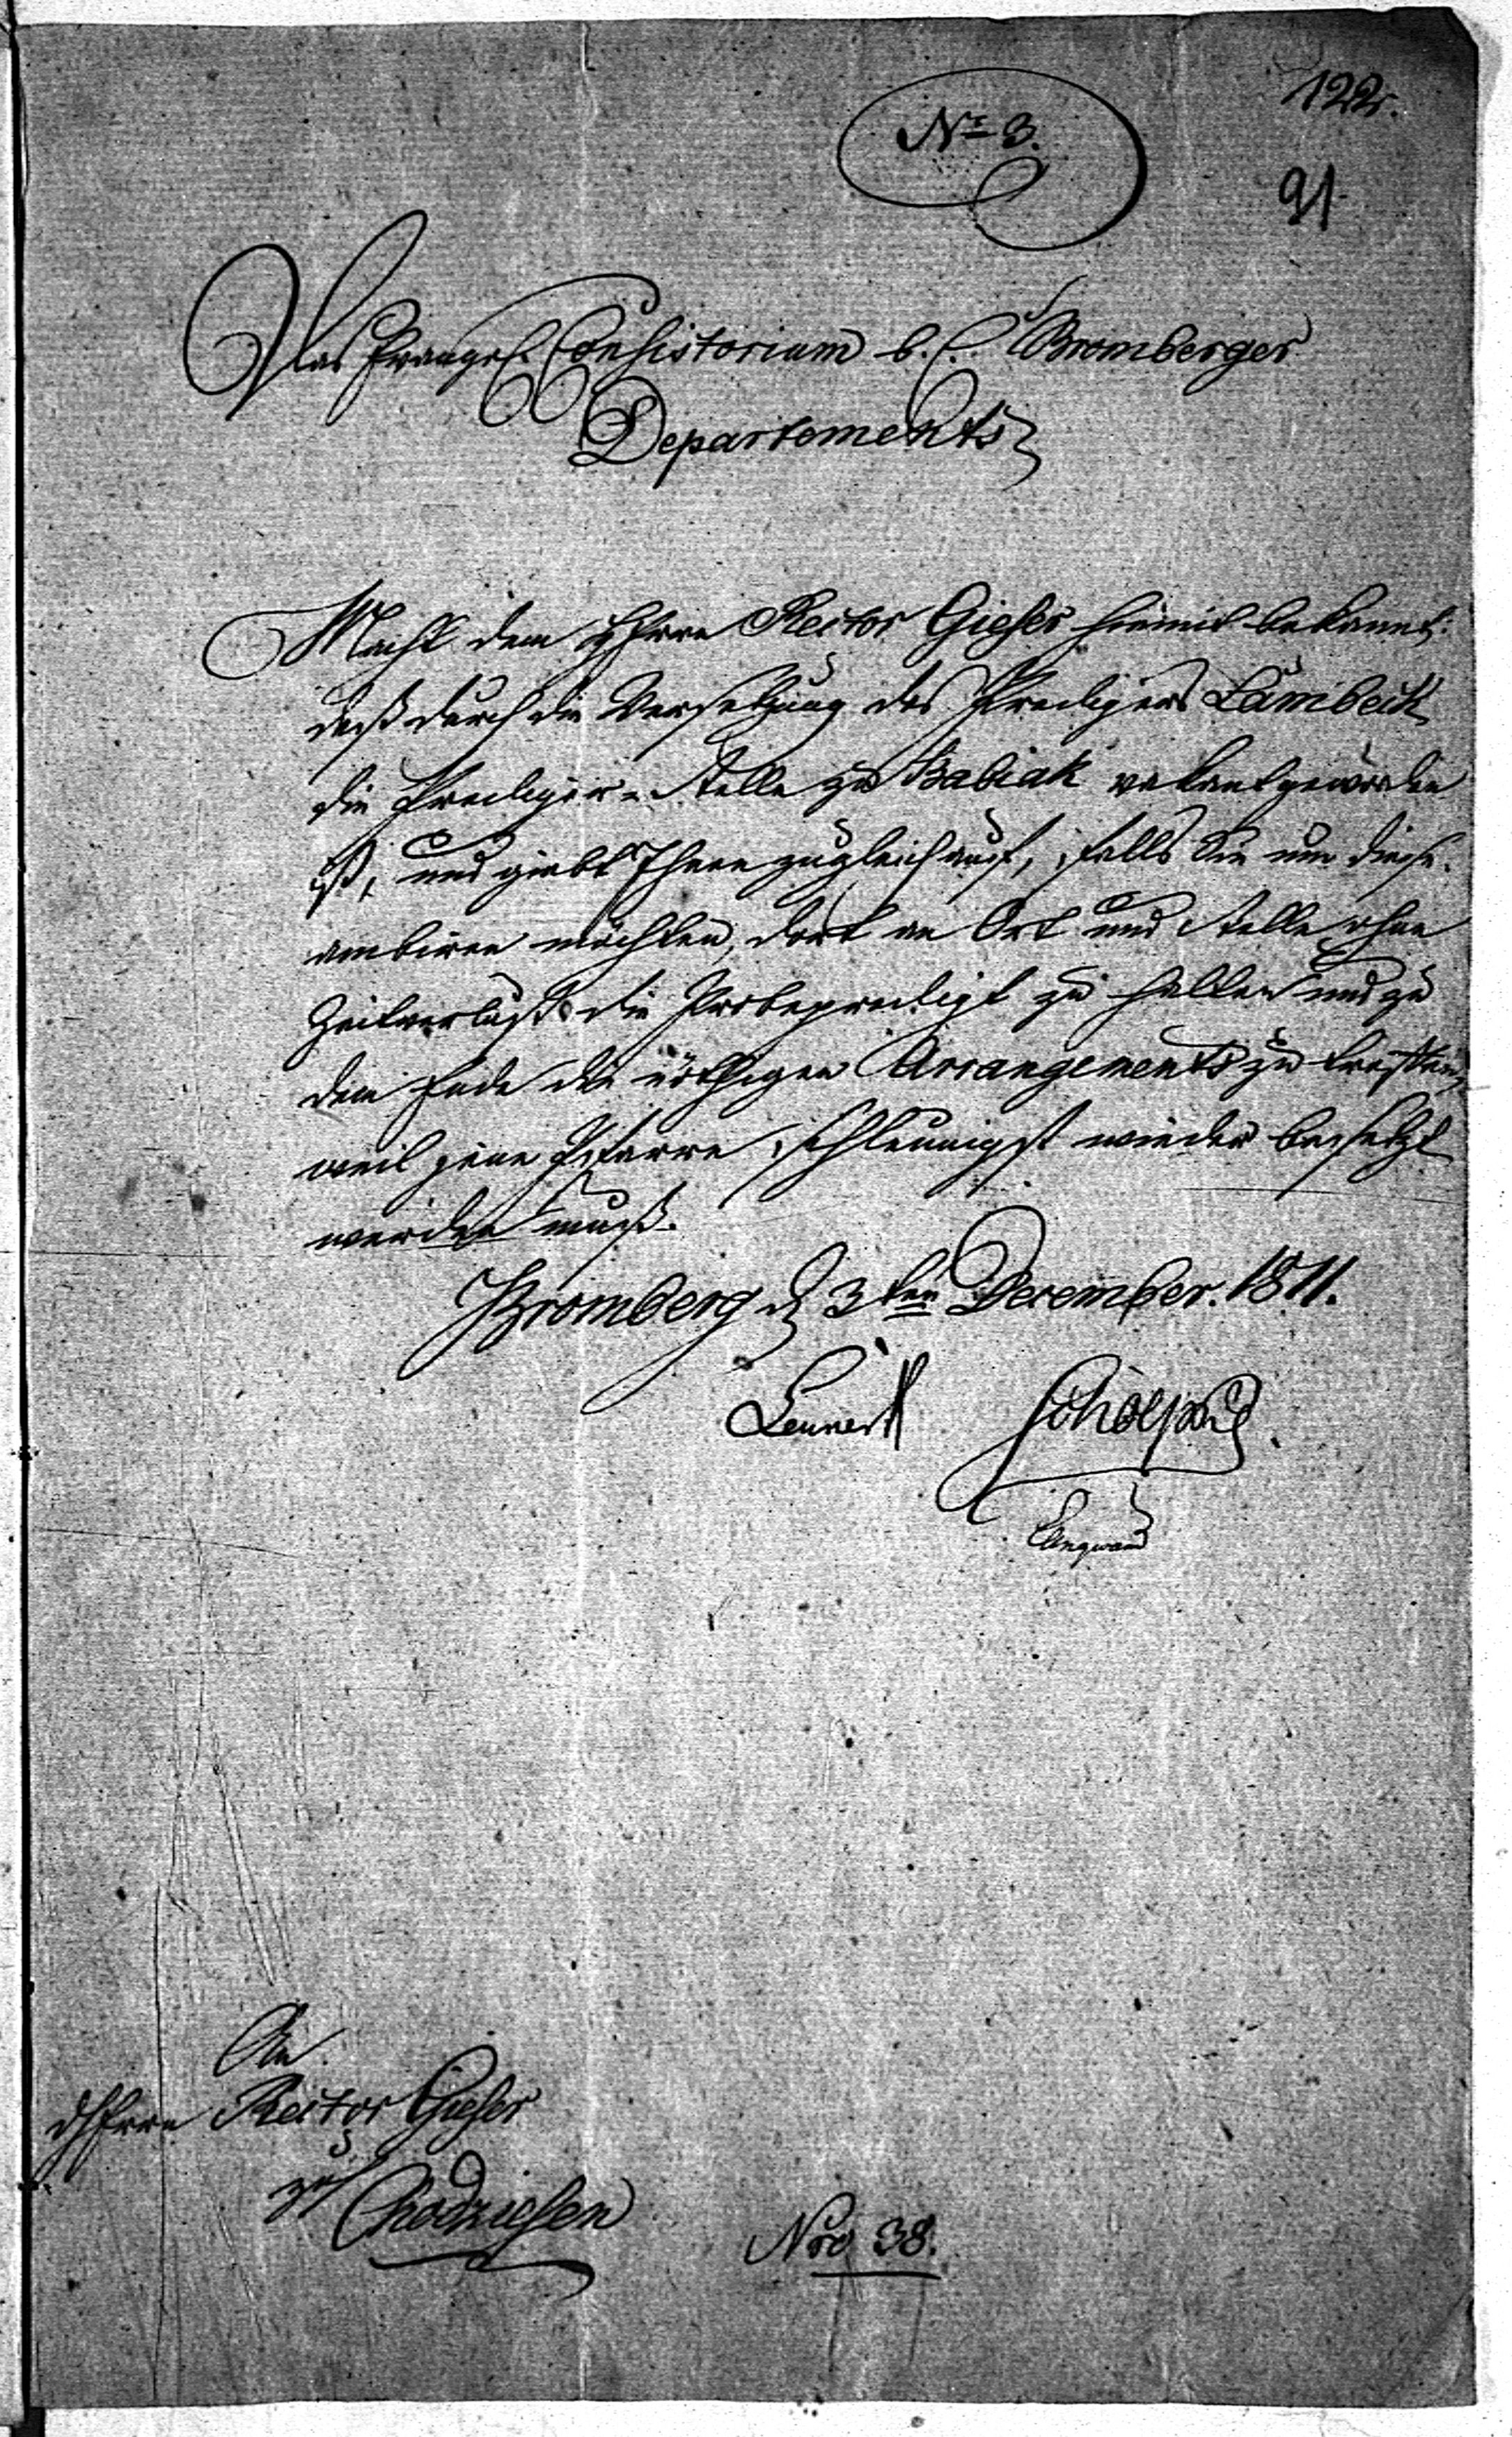 122.
No 3.
91
Das Evangel. Consistorium b. C. Bromberger
Departements
Macht dem Herrn Rector Gieser hiemit bekannt:
daß durch die Versetzung des Predigers Lambeck
die Prediger-Stelle zu Babiak vakant geworden
ist, und giebt Ihnen zugleich auf, falls Sie um diese
ambiren möchten, dort an Ort und Stelle ohne
Zeitverlust die Probepredigt zu halten und zu
dem Ende die nöthigen Arrangements zu treffen,
weil jene Pfarre schleunigst wieder besetzt
werden muß.
Bromberg d 3ten December. 1811.
An
Herrn Rector Gieser
zu Chodziesen
Nro 38.